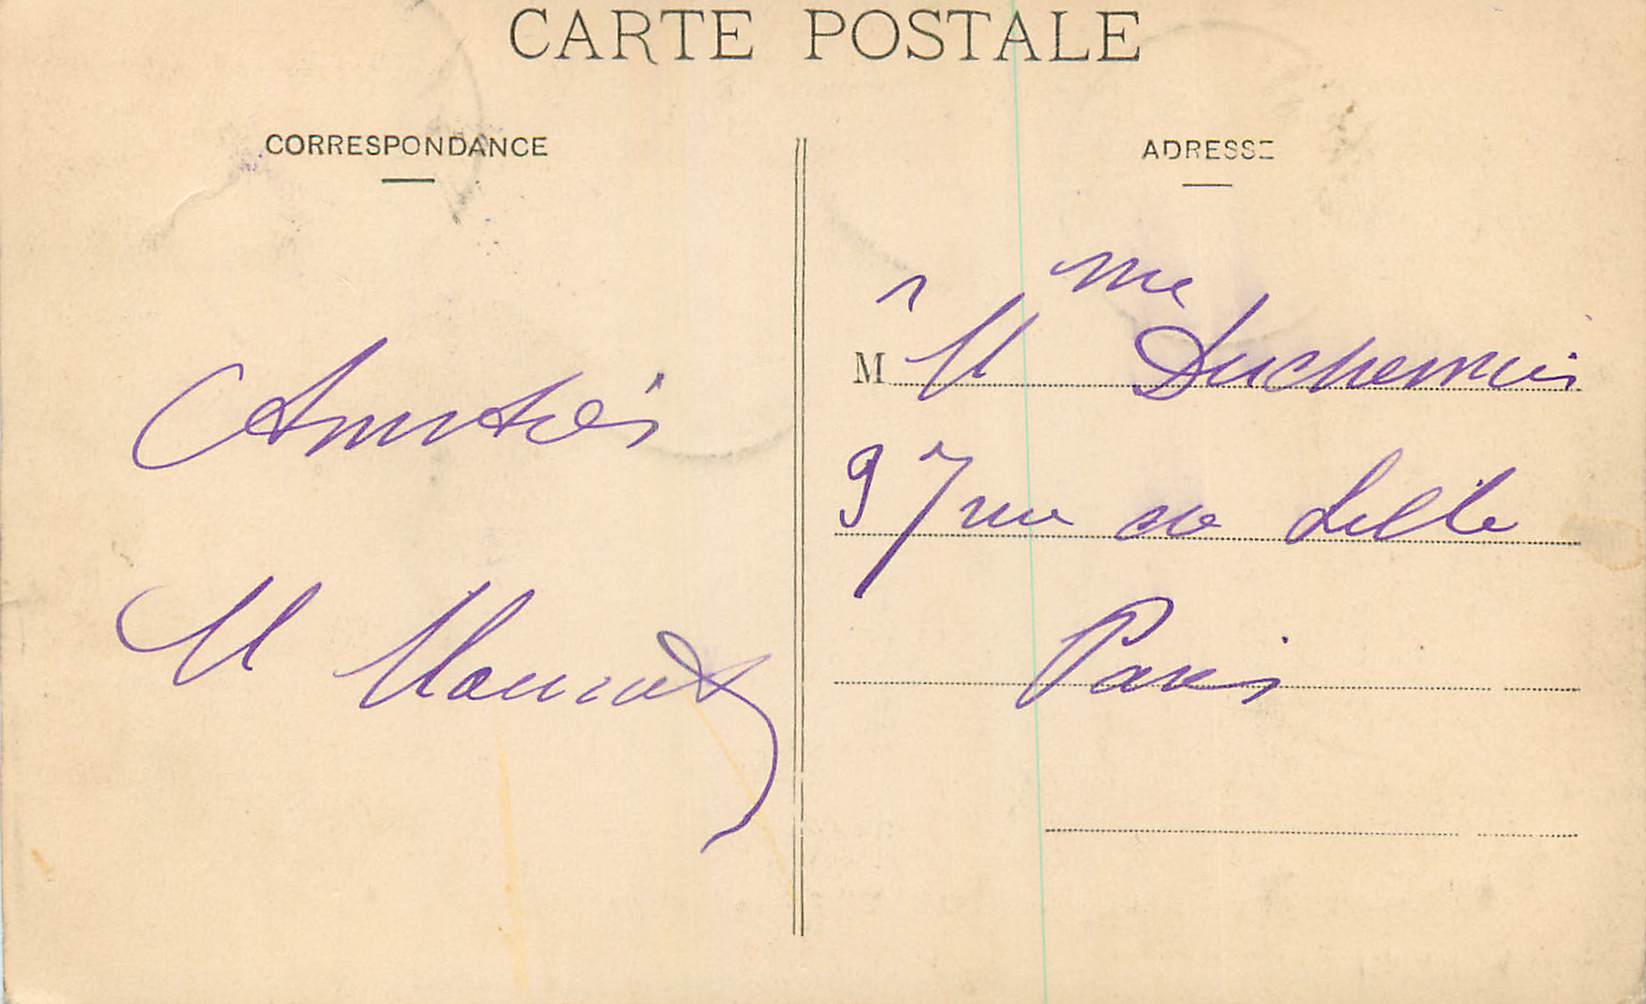 CARTE POSTALE
CORRESPONDANCE
Amitiés
M
ADRESSE
M Mme Duchemin
97 rue de Lille
Paris